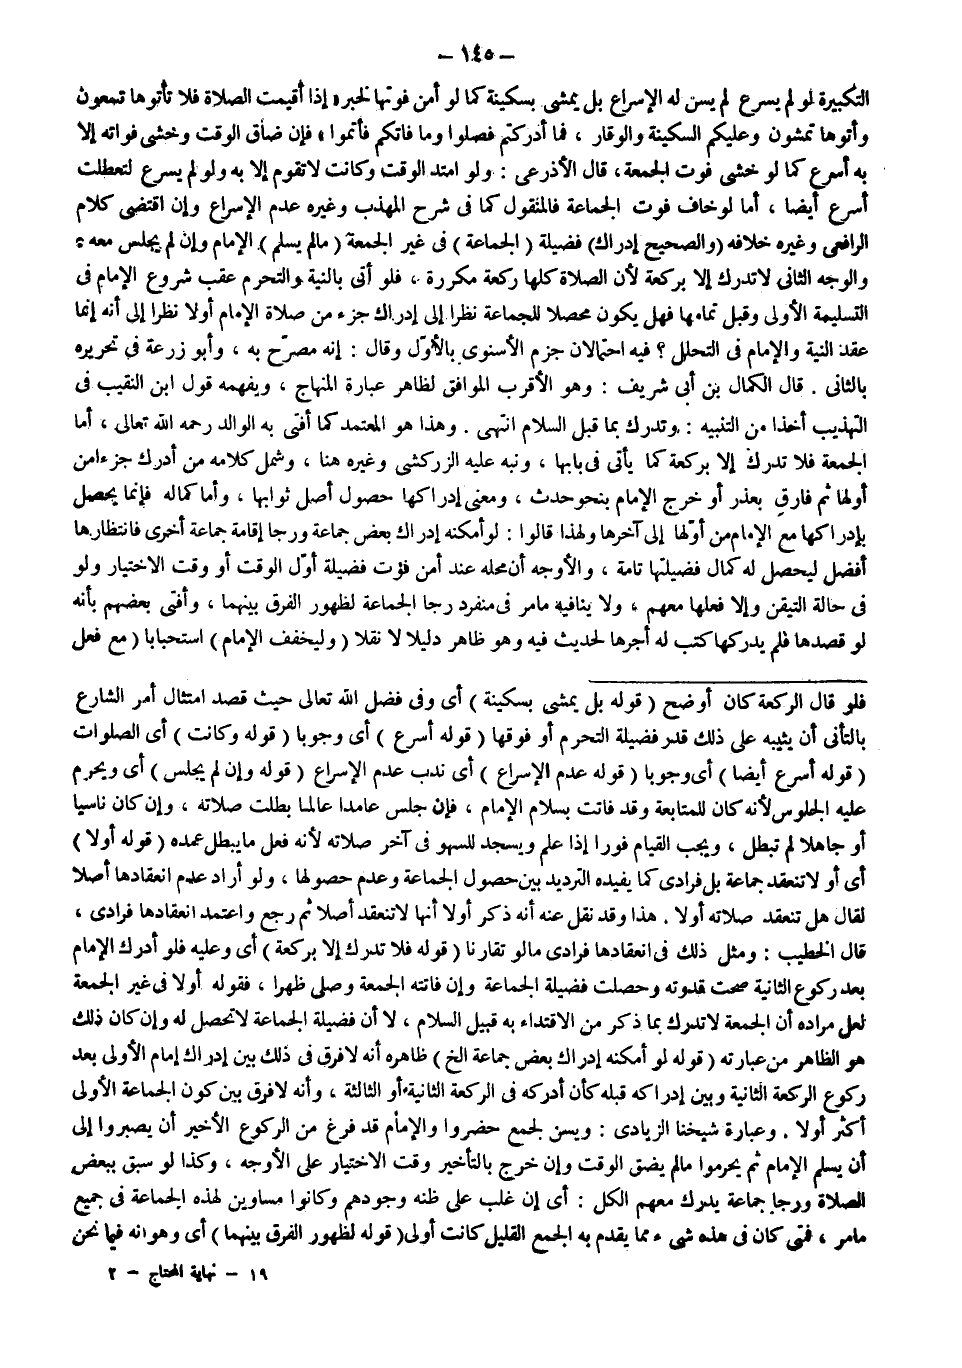 – ١٤٥ –
التكبيرة لو لم يسرع لم يسن له الإسراع بل يمشى بسكينة كما لو أمن فوتها لخبر « إذا أقيمت الصلاة فلا تأتوها تسعون
وأتوها تمشون وعليكم السكينة والوقار ، فما أدركتم فصلوا وما فاتكم فأتموا » فإن ضاق الوقت وخشى فواته إلا
به أسرع كما لو خشى فوت الجمعة ، قال الأذرعى : ولو امتد الوقت وكانت لاتقوم إلا به ولو لم يسرع لتعطلت
أسرع أيضا ، أما لو خاف فوت الجماعة فالمنقول كما فى شرح المهذب وغيره عدم الإسراع وإن اقتضى كلام
الرافعى وغيره خلافه (والصحيح إدراك) فضيلة ( الجماعة ) فى غير الجمعة ( مالم يسلم ) الإمام وإن لم يجلس معه ؛
والوجه الثانى لاتدرك إلا بركعة لأن الصلاة كلها ركعة مكررة ، فلو أتى بالنية والتحرم عقب شروع الإمام فى
التسليمة الأولى وقبل تمامها فهل يكون محصلا للجماعة نظرا إلى إدراك جزء من صلاة الإمام أولا نظرا إلى أنه إنما
عقد النية والإمام فى التحلل ؟ فيه احتمالان جزم الأسنوى بالأوّل وقال : إنه مصرّح به ، وأبو زرعة فى تحريره
بالثانى . قال الكمال بن أبى شريف : وهو الأقرب الموافق لظاهر عبارة المنهاج ، ويفهمه قول ابن النقيب فى
التهذيب أخذا من التنبيه : وتدرك بما قبل السلام انتهى . وهذا هو المعتمد كما أفتى به الوالد رحمه الله تعالى ، أما
الجمعة فلا تدرك إلا بركعة كما يأتى فى بابها ، ونبه عليه الزركشى وغيره هنا ، وشمل كلامه من أدرك جزءا من
أولها ثم فارق بعذر أو خرج الإمام بنحو حدث ، ومعنى إدراكها حصول أصل ثوابها ، وأما كماله فإنما يحصل
بإدراكها مع الإمام من أوّلها إلى آخرها ولهذا قالوا : لو أمكنه إدراك بعض جماعة ورجا إقامة جماعة أخرى فانتظارها
أفضل ليحصل له كمال فضيلتها تامة ، والأوجه أن محله عند أمن فوت فضيلة أوّل الوقت أو وقت الاختيار ولو
فى حالة التيقن وإلا فعلها معهم ، ولا ينافيه مامر فى منفرد رجا الجماعة لظهور الفرق بينهما ، وأفتى بعضهم بأنه
لو قصدها فلم يدركها كتب له أجرها لحديث فيه وهو ظاهر دليلا لا نقلا ( وليخفف الإمام ) استحبابا ( مع فعل
فلو قال الركعة كان أوضح ( قوله بل يمشى بسكينة ) أى وفى فضل الله تعالى حيث قصد امتثال أمر الشارع
بالتأنى أن يثيبه على ذلك قدر فضيلة التحرم أو فوقها ( قوله أسرع ) أى وجوبا ( قوله وكانت ) أى الصلوات
( قوله أسرع أيضا ) أى وجوبا ( قوله عدم الإسراع ) أى ندب عدم الإسراع ( قوله وإن لم يجلس ) أى ويحرم
عليه الجلوس لأنه كان للمتابعة وقد فاتت بسلام الإمام ، فإن جلس عامدا عالما بطلت صلاته ، وإن كان ناسيا
أو جاهلا لم تبطل ، ويجب القيام فورا إذا علم ويسجد للسهو فى آخر صلاته لأنه فعل مايبطل عمده ( قوله أولا )
أى أو لاتنعقد جماعة بل فرادى كما يفيده الترديد بين حصول الجماعة وعدم حصولها ، ولو أراد عدم انعقادها أصلا
لقال هل تنعقد صلاته أولا . هذا وقد نقل عنه أنه ذكر أولا أنها لاتنعقد أصلا ثم رجع واعتمد انعقادها فرادى ،
قال الخطيب : ومثل ذلك فى انعقادها فرادى مالو تقارنا ( قوله فلا تدرك إلا بركعة ) أى وعليه فلو أدرك الإمام
بعد ركوع الثانية صحت قدوته وحصلت فضيلة الجماعة وإن فاتته الجمعة وصلى ظهرا ، فقوله أولا فى غير الجمعة
لعل مراده أن الجمعة لاتدرك بما ذكر من الاقتداء به قبيل السلام ، لا أن فضيلة الجماعة لاتحصل له وإن كان ذلك
هو الظاهر من عبارته ( قوله لو أمكنه إدراك بعض جماعة الخ ) ظاهره أنه لافرق فى ذلك بين إدراك إمام الأولى بعد
ركوع الركعة الثانية وبين إدراكه قبله كأن أدركه فى الركعة الثانية أو الثالثة ، وأنه لافرق بين كون الجماعة الأولى
أكثر أولا . وعبارة شيخنا الزيادى : ويسن لجمع حضروا والإمام قد فرغ من الركوع الأخير أن يصبروا إلى
أن يسلم الإمام ثم يحرموا مالم يضق الوقت وإن خرج بالتأخير وقت الاختيار على الأوجه ، وكذا لو سبق ببعض
الصلاة ورجا جماعة يدرك معهم الكل : أى إن غلب على ظنه وجودهم وكانوا مساوين لهذه الجماعة فى جميع
مامر ، فمتى كان فى هذه شىء مما يقدم به الجمع القليل كانت أولى ( قوله لظهور الفرق بينهما ) أى وهو انه فيما نحن
١٩ – نهاية المحتاج – ٢